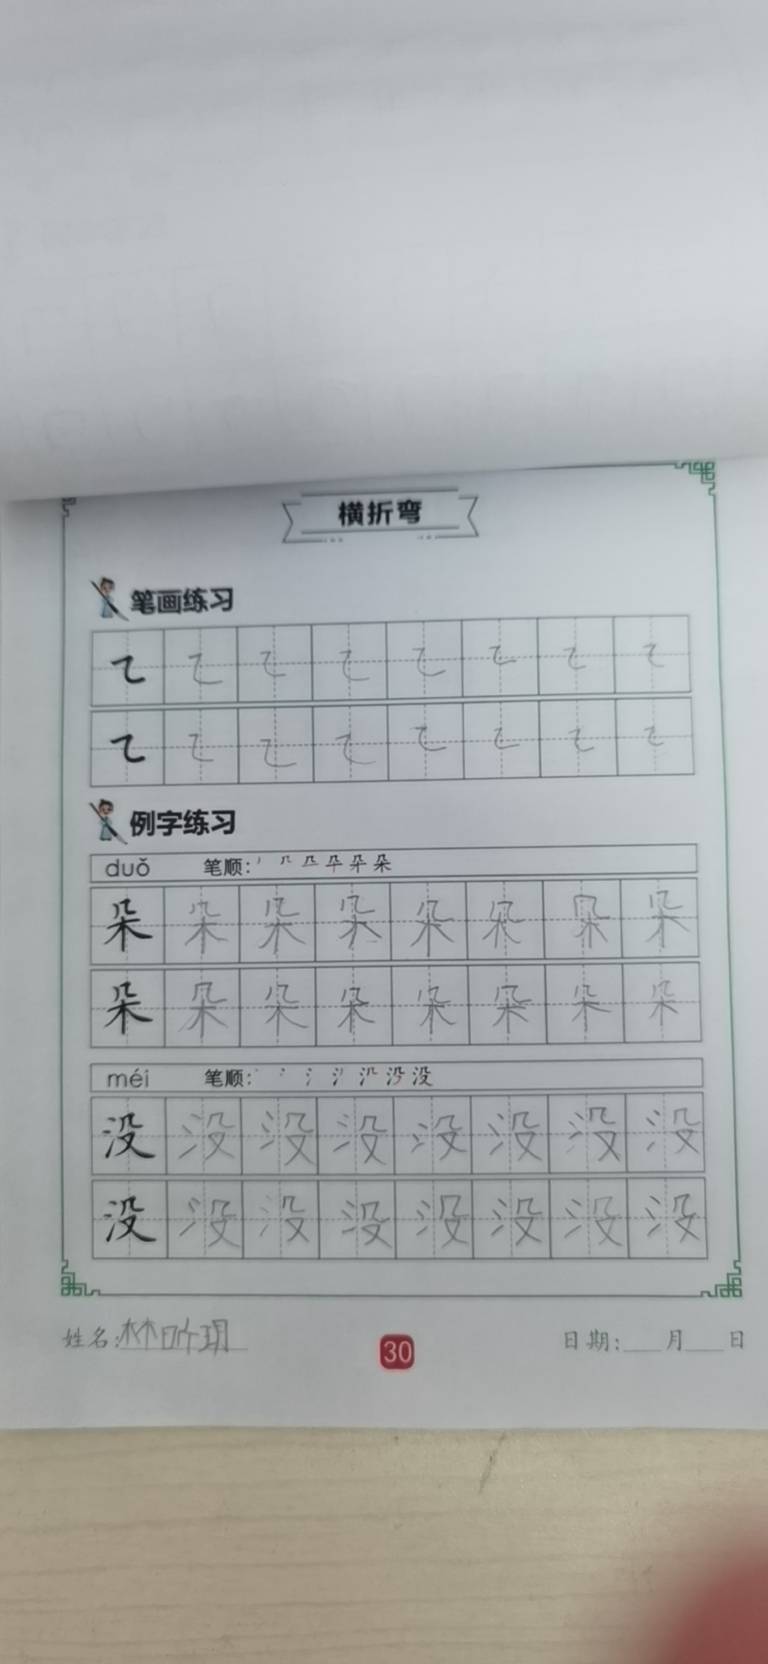 横折弯
笔画练习
㇍ ㇍ ㇍ ㇍ ㇍ ㇍ ㇍ ㇍
㇍ ㇍ ㇍ ㇍ ㇍ ㇍ ㇍ ㇍
例字练习
duǒ 笔顺:
朵 朵 朵 朵 朵 朵 朵 朵
朵 朵 朵 朵 朵 朵 朵 朵
méi 笔顺:
没 没 没 没 没 没 没 没
没 没 没 没 没 没 没 没
姓名: 30 日期: 月 日